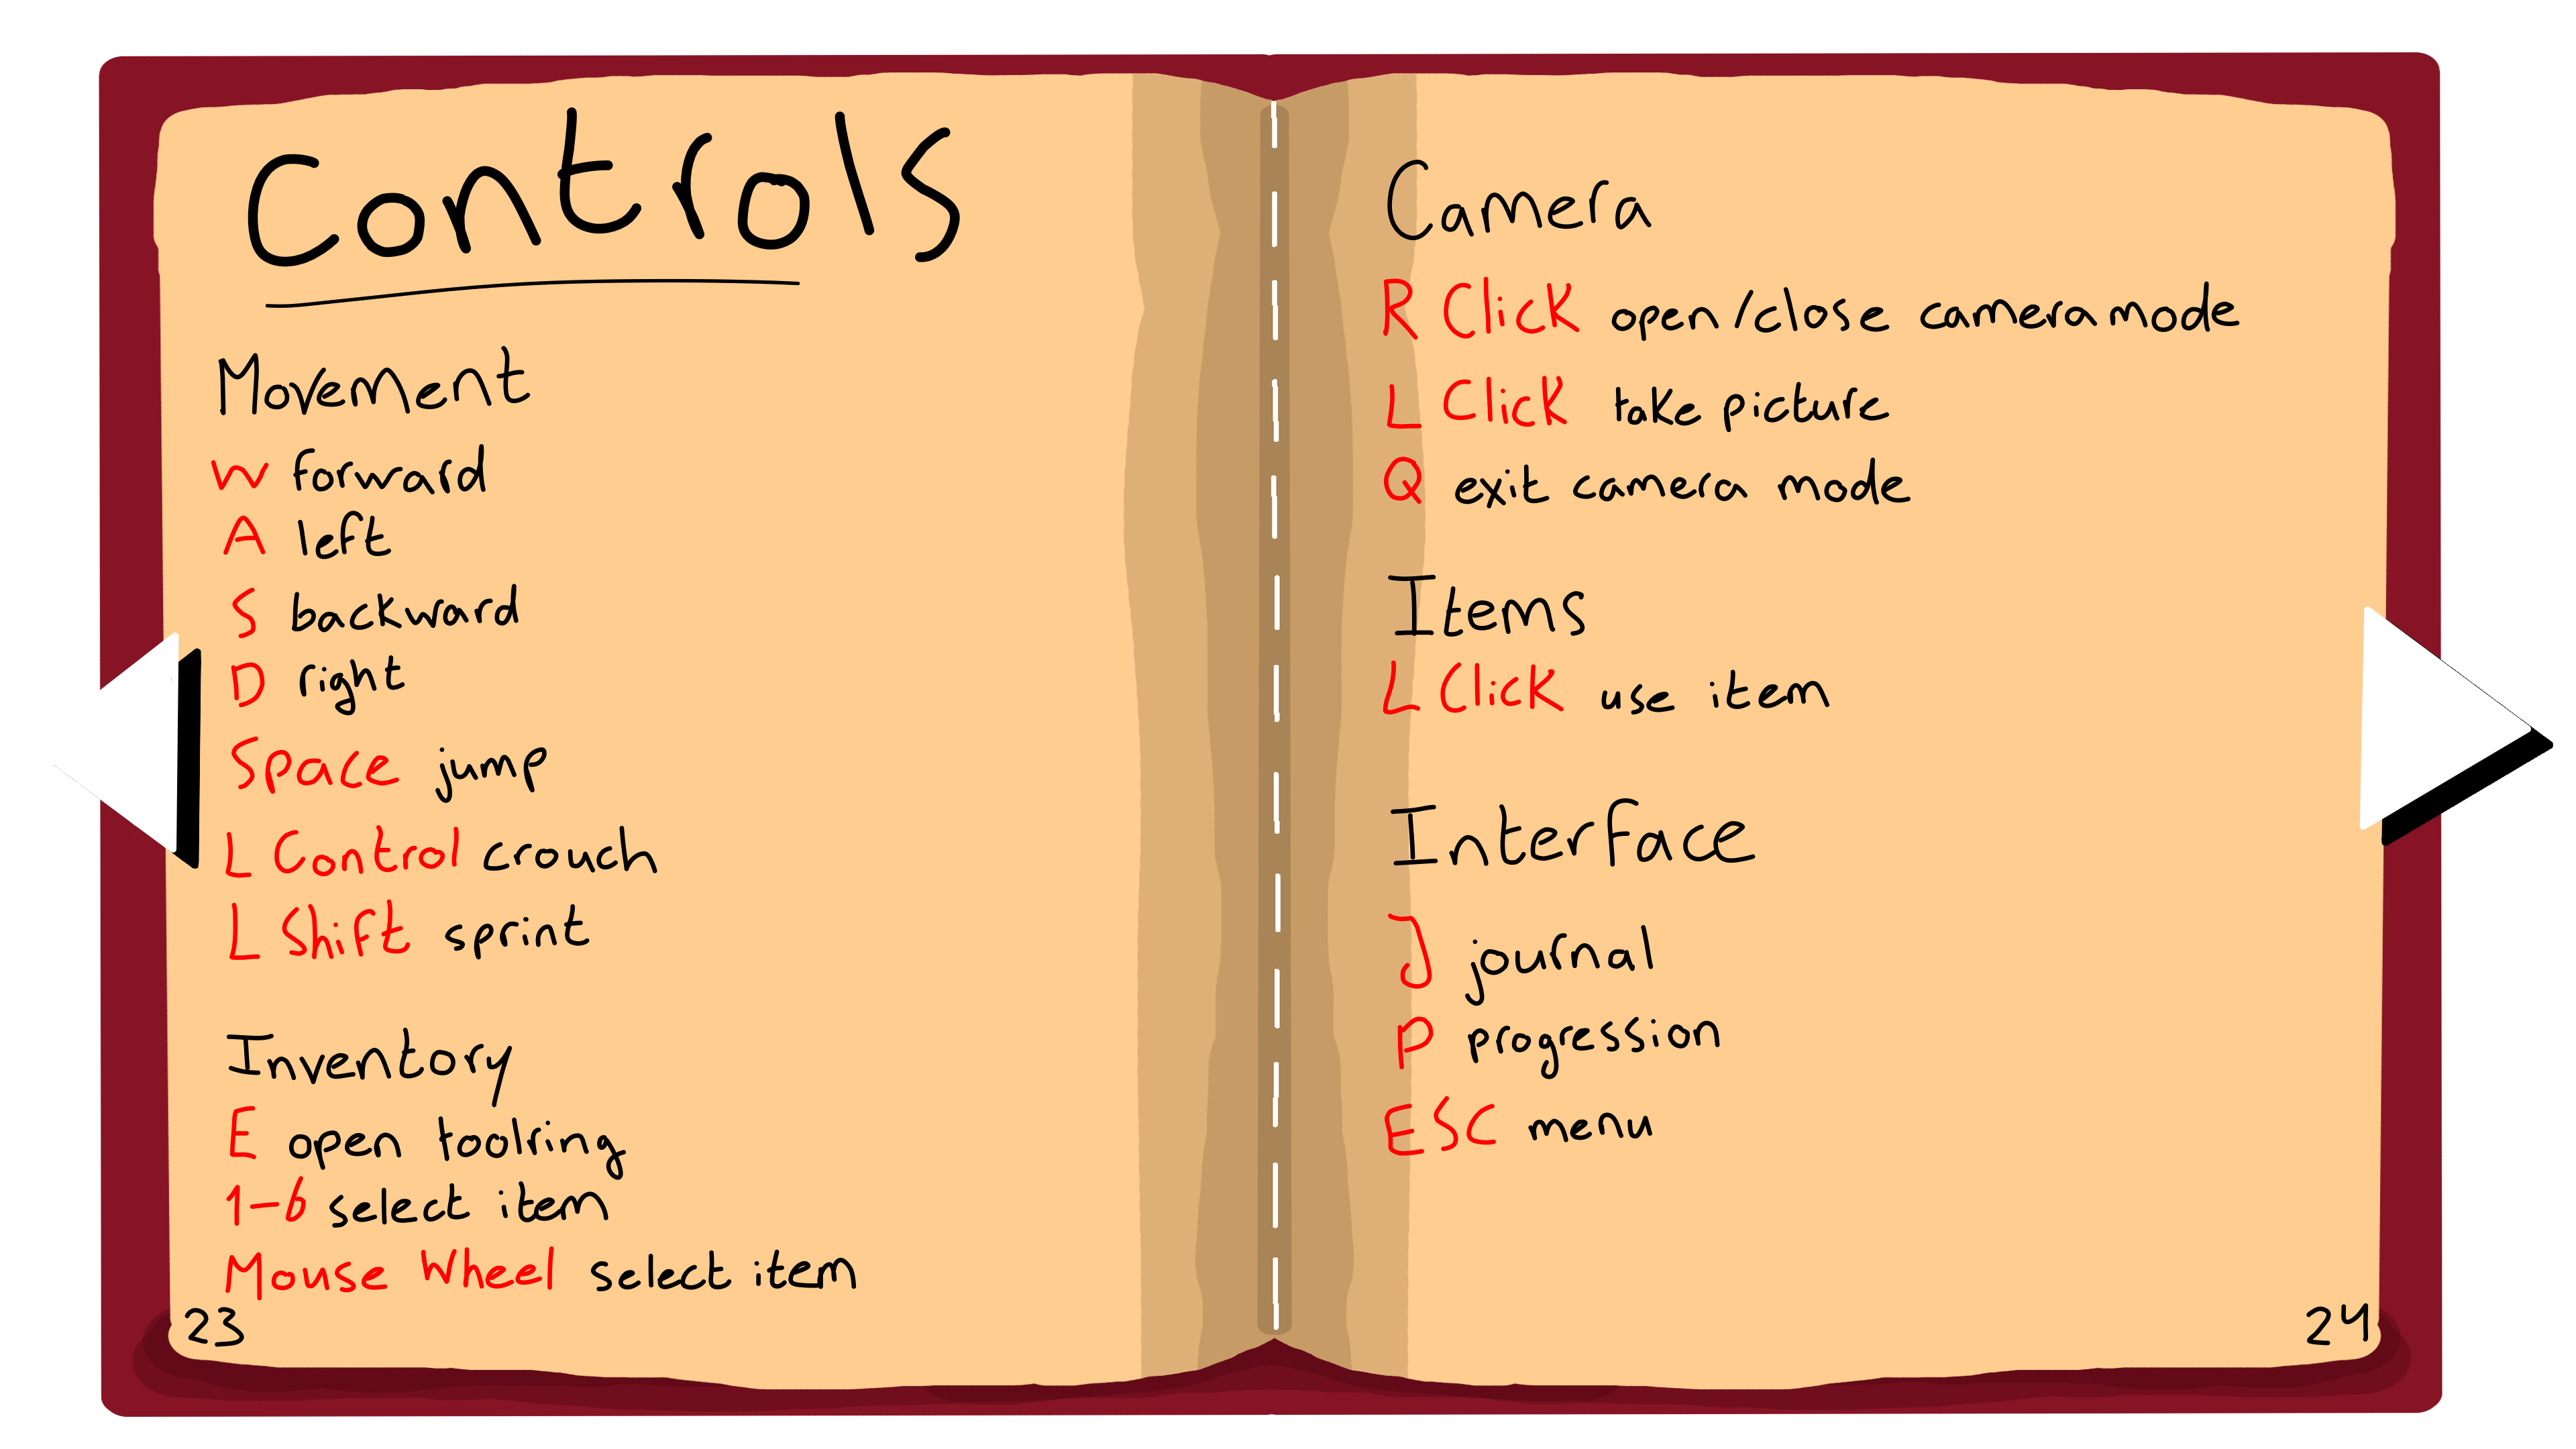 Controls
Movement
W forward
A left
S backward
D right
Space jump
L Control crouch
L Shift sprint
Inventory
E open toolring
1-6 select item
Mouse Wheel select item
23
Camera
R Click open/close camera mode
L Click take picture
Q exit camera mode
Items
L Click use item
Interface
J journal
P progression
ESC menu
24